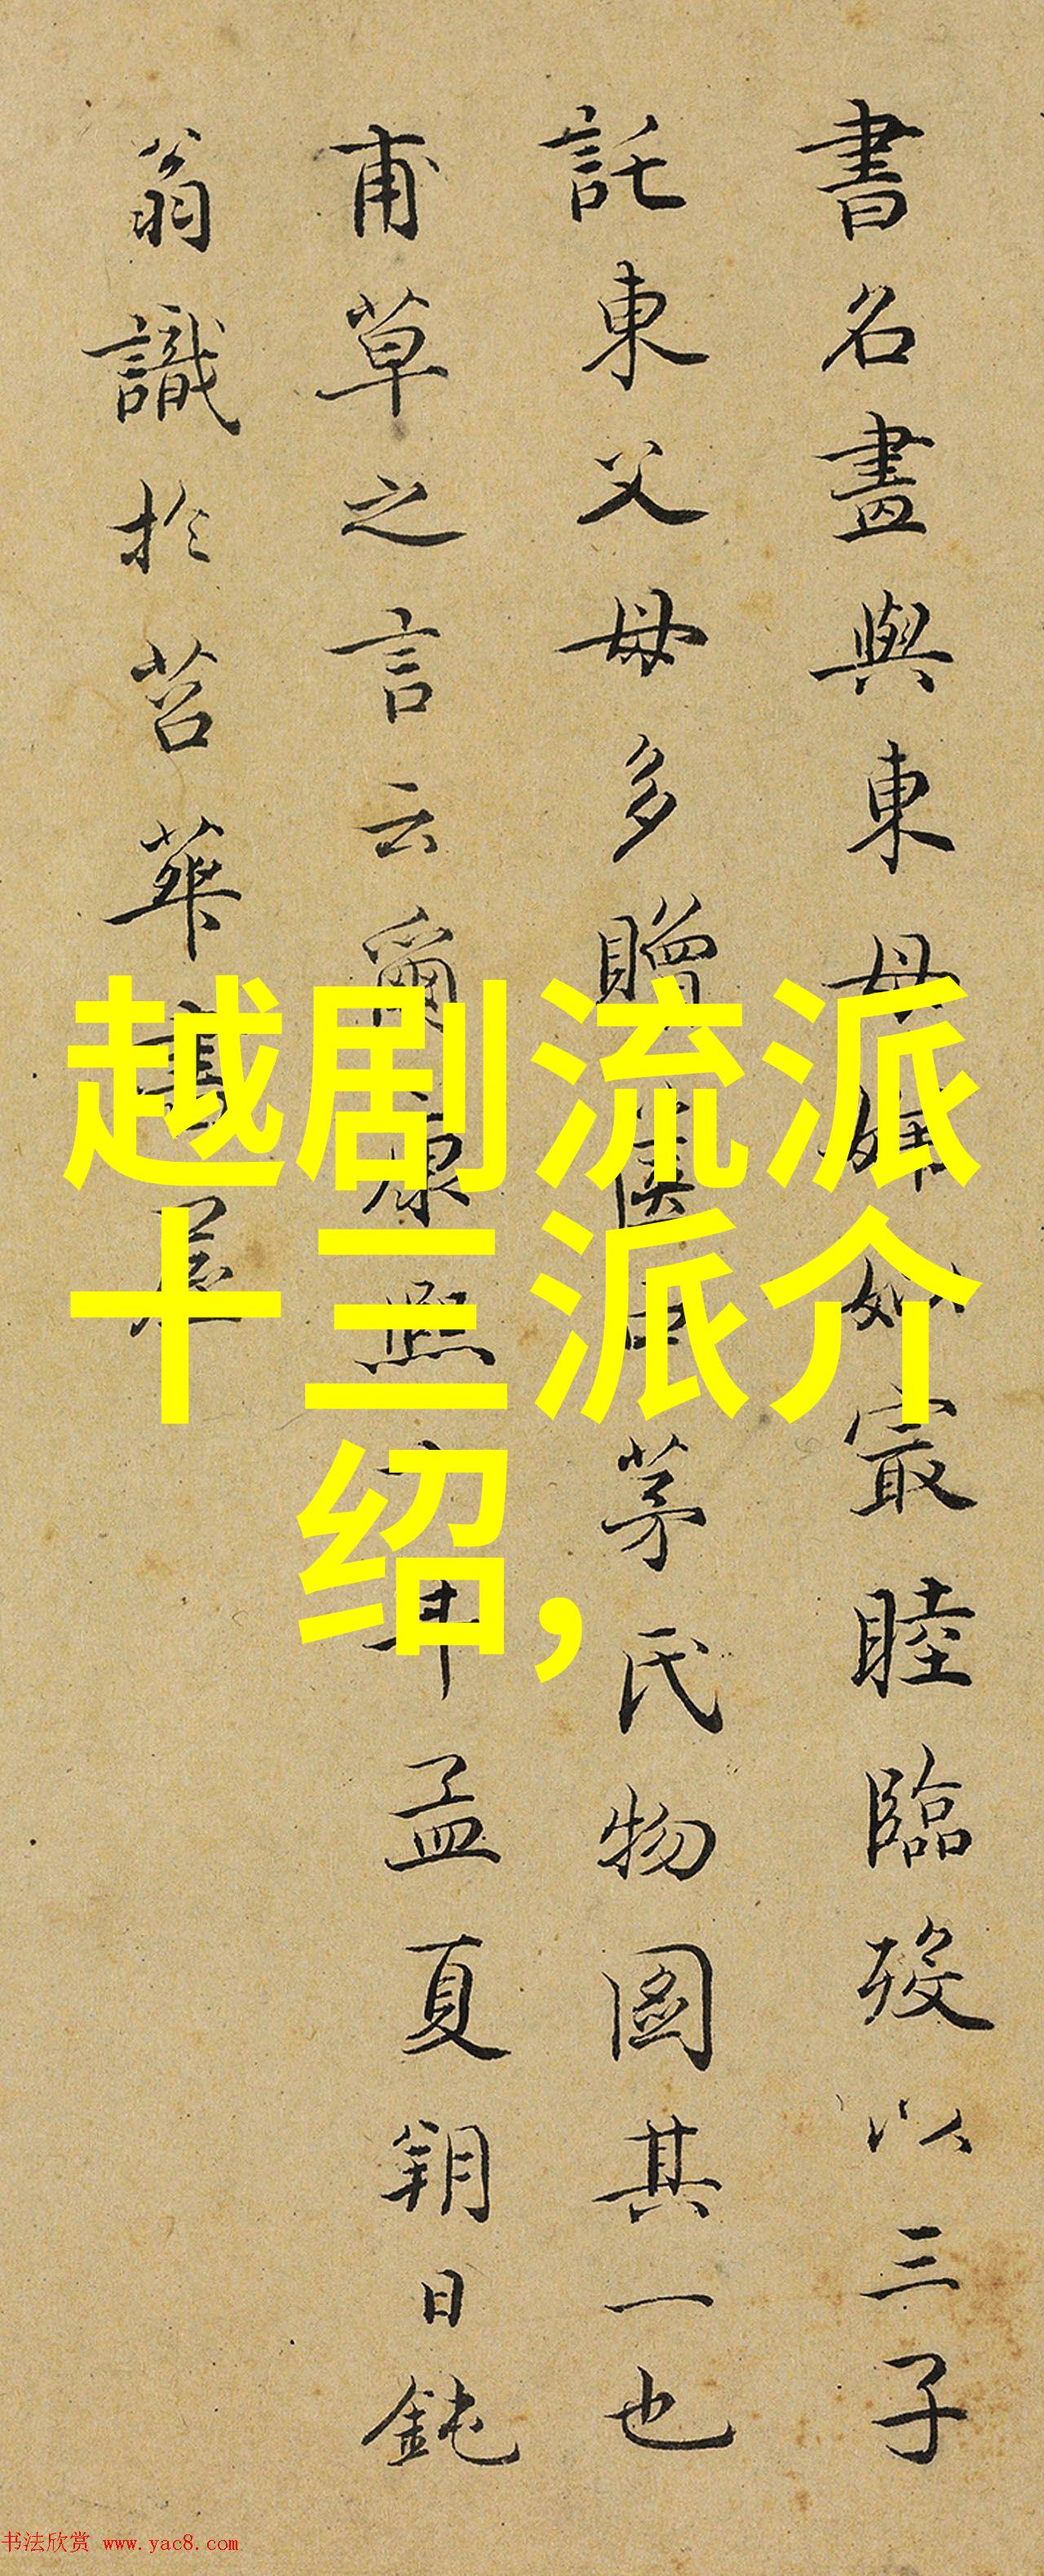 越剧流派
十三派介
绍,
書名畫與東母婦如寂睦臨歿以三子
託東父母多贈茅氏物圖其一也
甫草之言云爾康熙年孟夏朔日鈍
翁識於苕華書屋
书法欣赏 www.yac8.com